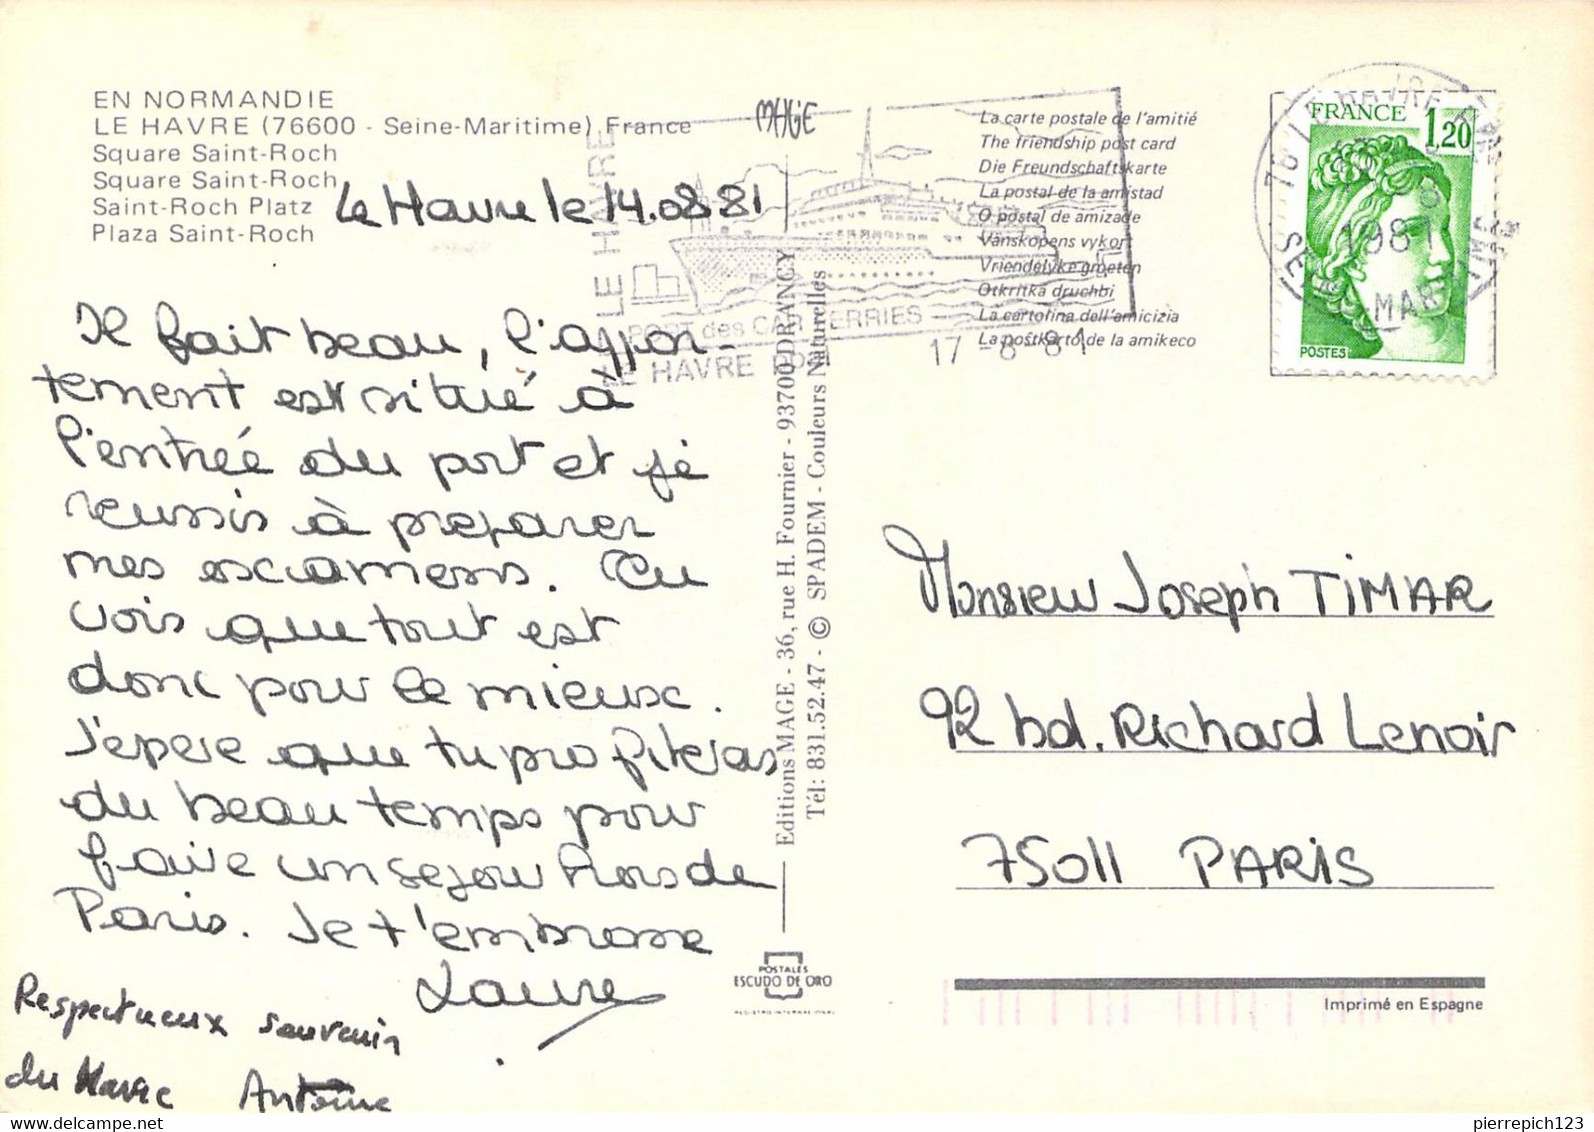 EN NORMANDIE
LE HAVRE (76600 - Seine-Maritime) France
Square Saint-Roch
Square Saint-Roch
Saint-Roch Platz
Plaza Saint-Roch
MAGE
Le Havre le 14.08 81
Il fait beau, l'appar-
tement est situé à
l'entrée du port et je
reussis à preparer
mes examens. Tu
vois que tout est
donc pour le mieux.
J'epere que tu profiteras
du beau temps pour
faire un sejour hors de
Paris. Je t'embrasse
Laure
Respectueux souvenir
du Havre Antoine
LE HAVRE
PORT des CAR FERRIES
LE HAVRE
17 - 8 - 81
La carte postale de l'amitié
The friendship post card
Die Freundschaftskarte
La postal de la amistad
O postal de amizade
Vänskapens vykort
Vriendelyke groeten
Otkritka druchbi
La cartolina dell'amicizia
La postkarto de la amikeco
FRANCE
1,20
POSTES
76 LE HAVRE
1981
SEINE MAR
Editions MAGE - 36, rue H. Fournier - 93700 DRANCY
Tél: 831.52.47 - © SPADEM - Couleurs Naturelles
POSTALES
ESCUDO DE ORO
REGISTRO INTERNACIONAL
Monsieur Joseph TIMAR
92 bd. Richard Lenoir
75011 PARIS
Imprimé en Espagne
pierrepich123